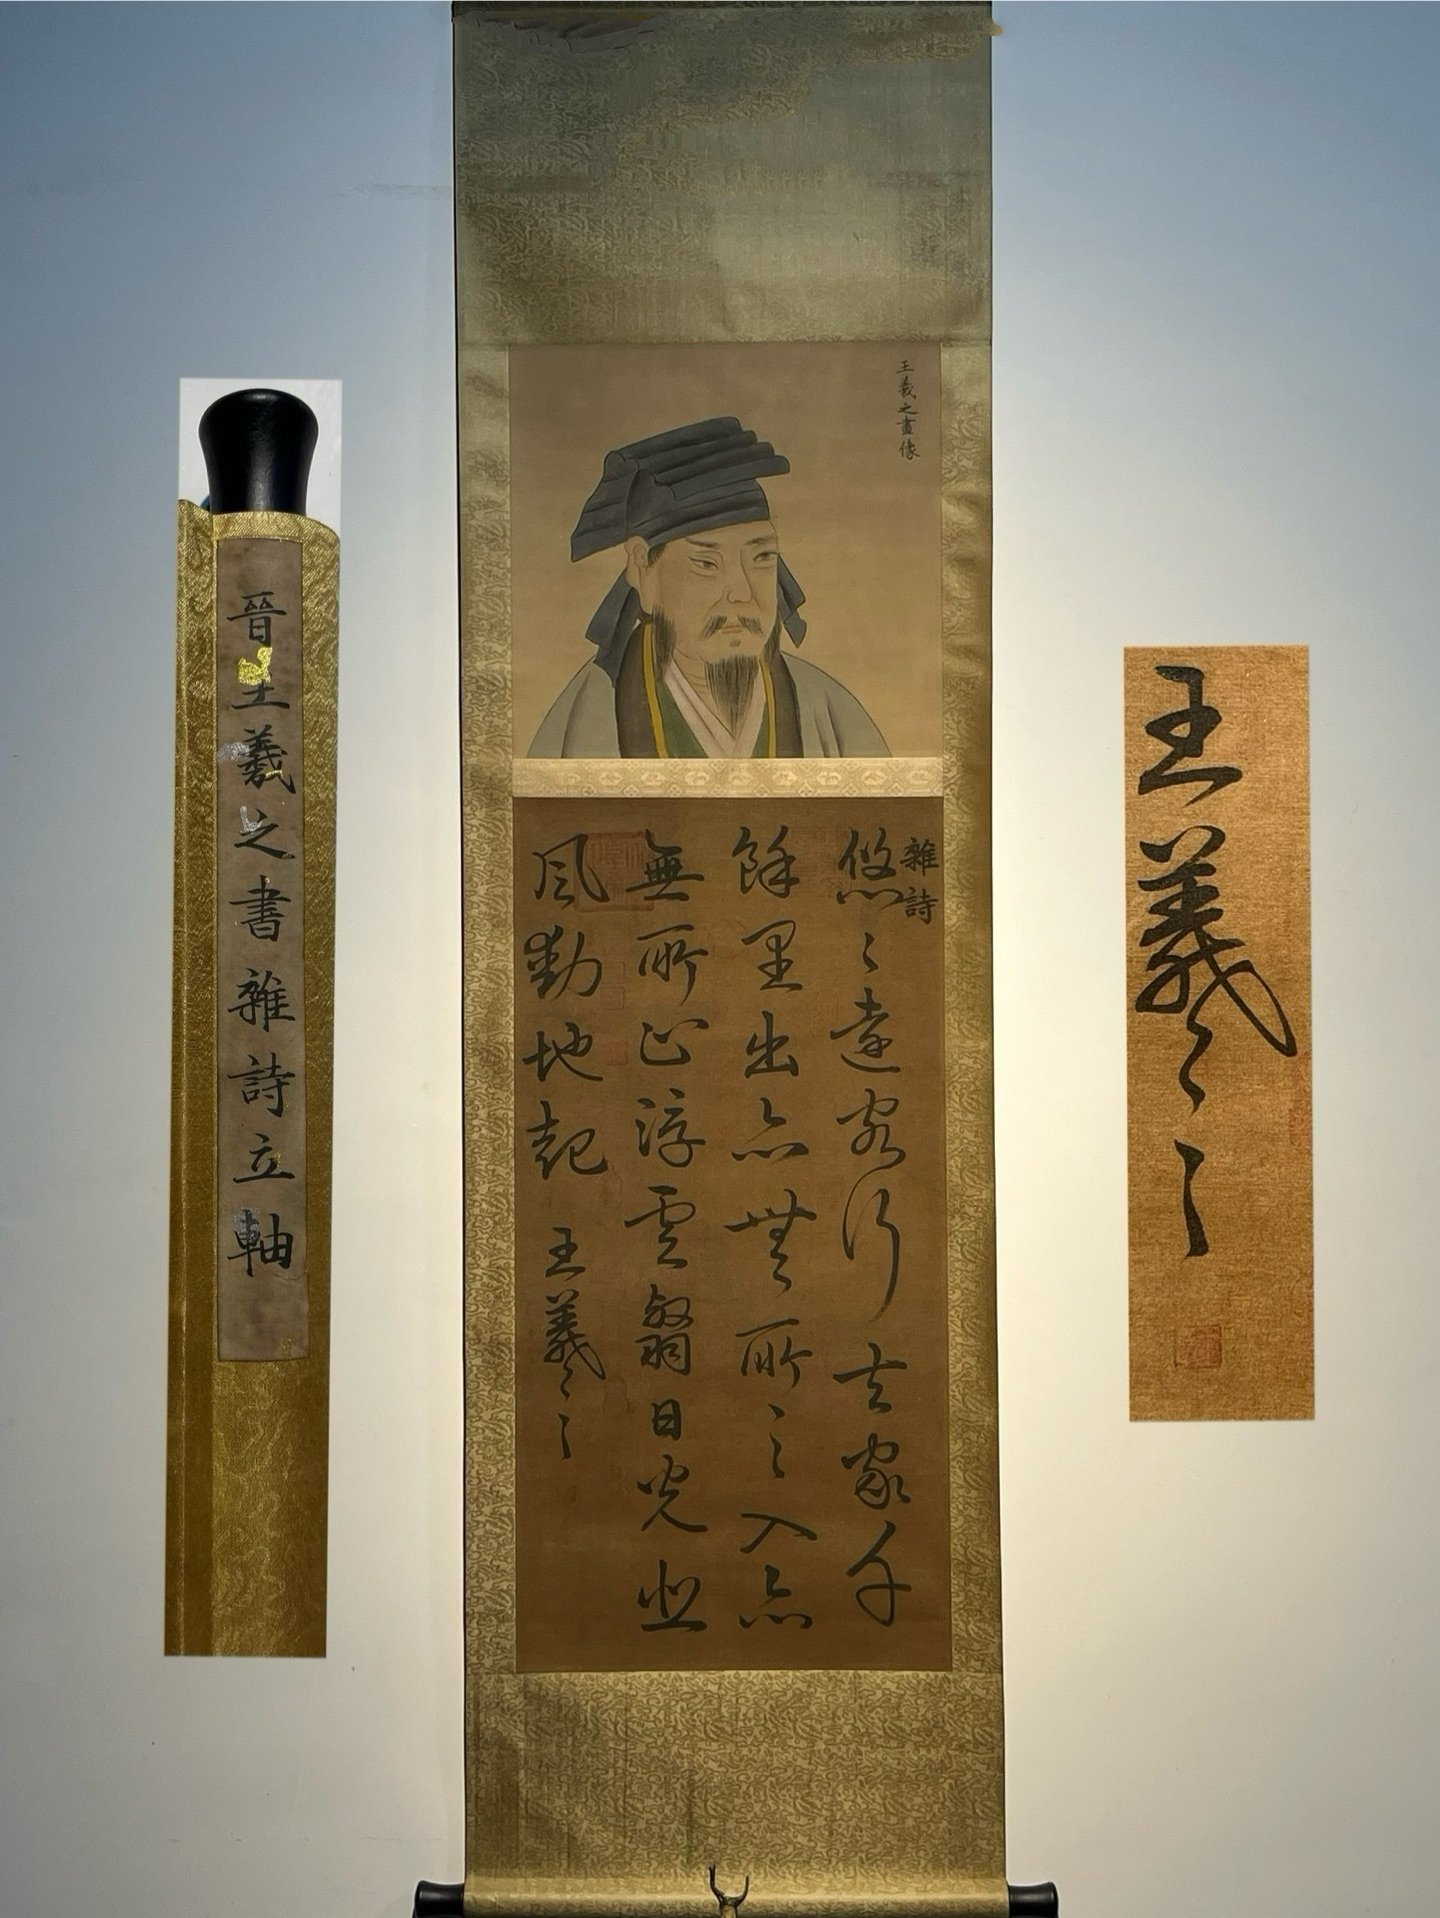 王羲之畫像
雜詩
悠〻遠客行去家千
餘里出亦無所之入亦
無所止浮雲翳日光悲
風動地起
王羲之
晉王羲之書雜詩立軸
王羲之